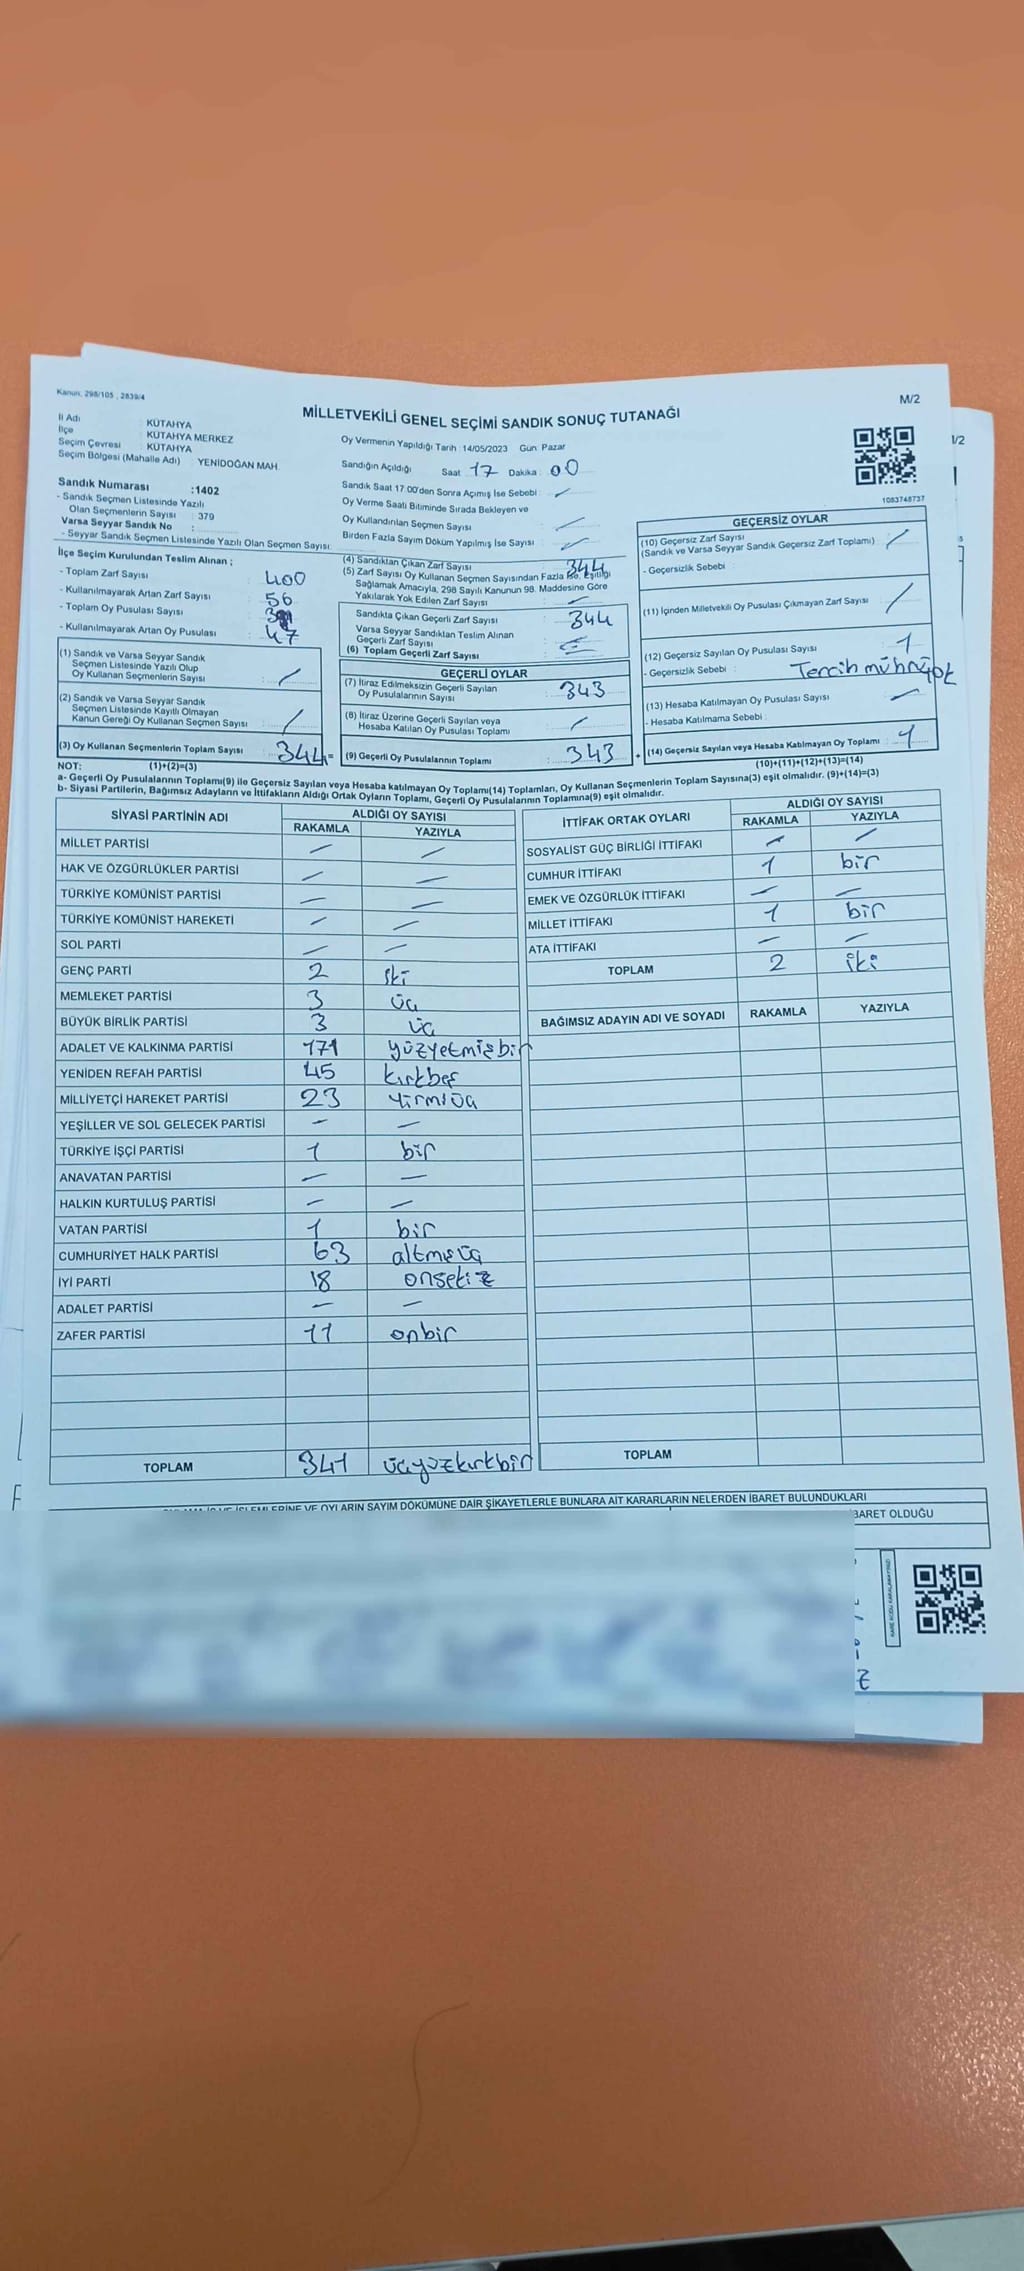 Kanun, 298/105 , 2839/4
M/2
MİLLETVEKİLİ GENEL SEÇİMİ SANDIK SONUÇ TUTANAĞI
İl Adı : KÜTAHYA
İlçe : KÜTAHYA MERKEZ
Seçim Çevresi : KÜTAHYA
Seçim Bölgesi (Mahalle Adı) : YENİDOĞAN MAH.
Oy Vermenin Yapıldığı Tarih : 14/05/2023 Gün: Pazar
Sandığın Açıldığı Saat : 17 Dakika : 00
Sandık Saat 17.00'den Sonra Açımış İse Sebebi : -
Oy Verme Saati Bitiminde Sırada Bekleyen ve
Oy Kullandırılan Seçmen Sayısı -
Birden Fazla Sayım Döküm Yapılmış İse Sayısı -
1083748737
Sandık Numarası :1402
- Sandık Seçmen Listesinde Yazılı
Olan Seçmenlerin Sayısı : 379
Varsa Seyyar Sandık No :
- Seyyar Sandık Seçmen Listesinde Yazılı Olan Seçmen Sayısı:
İlçe Seçim Kurulundan Teslim Alınan ;
- Toplam Zarf Sayısı : 400
- Kullanılmayarak Artan Zarf Sayısı : 56
- Toplam Oy Pusulası Sayısı :
- Kullanılmayarak Artan Oy Pusulası : 47
(1) Sandık ve Varsa Seyyar Sandık
Seçmen Listesinde Yazılı Olup
Oy Kullanan Seçmenlerin Sayısı : /
(2) Sandık ve Varsa Seyyar Sandık
Seçmen Listesinde Kayıtlı Olmayan
Kanun Gereği Oy Kullanan Seçmen Sayısı : /
(3) Oy Kullanan Seçmenlerin Toplam Sayısı : 344 =
(4) Sandıktan Çıkan Zarf Sayısı : 344
(5) Zarf Sayısı Oy Kullanan Seçmen Sayısından Fazla İse, Eşitliği
Sağlamak Amacıyla, 298 Sayılı Kanunun 98. Maddesine Göre
Yakılarak Yok Edilen Zarf Sayısı : -
Sandıkta Çıkan Geçerli Zarf Sayısı : 344
Varsa Seyyar Sandıktan Teslim Alınan
Geçerli Zarf Sayısı : -
(6) Toplam Geçerli Zarf Sayısı : -
GEÇERLİ OYLAR
(7) İtiraz Edilmeksizin Geçerli Sayılan
Oy Pusulalarının Sayısı : 343
(8) İtiraz Üzerine Geçerli Sayılan veya
Hesaba Katılan Oy Pusulası Toplamı : /
(9) Geçerli Oy Pusulalarının Toplamı : 343 +
GEÇERSİZ OYLAR
(10) Geçersiz Zarf Sayısı
(Sandık ve Varsa Seyyar Sandık Geçersiz Zarf Toplamı) : /
- Geçersizlik Sebebi :
(11) İçinden Milletvekili Oy Pusulası Çıkmayan Zarf Sayısı : /
(12) Geçersiz Sayılan Oy Pusulası Sayısı : 1
- Geçersizlik Sebebi : Tercih mührü yok
(13) Hesaba Katılmayan Oy Pusulası Sayısı : -
- Hesaba Katılmama Sebebi :
(14) Geçersiz Sayılan veya Hesaba Katılmayan Oy Toplamı : 1
NOT: (1)+(2)=(3)
(10)+(11)+(12)+(13)=(14)
a- Geçerli Oy Pusulalarının Toplamı(9) ile Geçersiz Sayılan veya Hesaba katılmayan Oy Toplamı(14) Toplamları, Oy Kullanan Seçmenlerin Toplam Sayısına(3) eşit olmalıdır. (9)+(14)=(3)
b- Siyasi Partilerin, Bağımsız Adayların ve İttifakların Aldığı Ortak Oyların Toplamı, Geçerli Oy Pusulalarının Toplamına(9) eşit olmalıdır.
SİYASİ PARTİNİN ADI ALDIĞI OY SAYISI
RAKAMLA YAZIYLA
MİLLET PARTİSİ - -
HAK VE ÖZGÜRLÜKLER PARTİSİ - -
TÜRKİYE KOMÜNİST PARTİSİ - -
TÜRKİYE KOMÜNİST HAREKETİ - -
SOL PARTİ - -
GENÇ PARTİ 2 iki
MEMLEKET PARTİSİ 3 üç
BÜYÜK BİRLİK PARTİSİ 3 üç
ADALET VE KALKINMA PARTİSİ 171 yüzyetmişbir
YENİDEN REFAH PARTİSİ 45 kırkbeş
MİLLİYETÇİ HAREKET PARTİSİ 23 yirmiüç
YEŞİLLER VE SOL GELECEK PARTİSİ - -
TÜRKİYE İŞÇİ PARTİSİ 1 bir
ANAVATAN PARTİSİ - -
HALKIN KURTULUŞ PARTİSİ - -
VATAN PARTİSİ 1 bir
CUMHURİYET HALK PARTİSİ 63 altmışüç
İYİ PARTİ 18 onsekiz
ADALET PARTİSİ - -
ZAFER PARTİSİ 11 onbir
TOPLAM 341 üçyüzkırkbir
İTTİFAK ORTAK OYLARI ALDIĞI OY SAYISI
RAKAMLA YAZIYLA
SOSYALİST GÜÇ BİRLİĞİ İTTİFAKI - -
CUMHUR İTTİFAKI 1 bir
EMEK VE ÖZGÜRLÜK İTTİFAKI - -
MİLLET İTTİFAKI 1 bir
ATA İTTİFAKI - -
TOPLAM 2 iki
BAĞIMSIZ ADAYIN ADI VE SOYADI RAKAMLA YAZIYLA
TOPLAM
İŞLEMLERİNE VE OYLARIN SAYIM DÖKÜMÜNE DAİR ŞİKAYETLERLE BUNLARA AİT KARARLARIN NELERDEN İBARET BULUNDUKLARI
BARET OLDUĞU